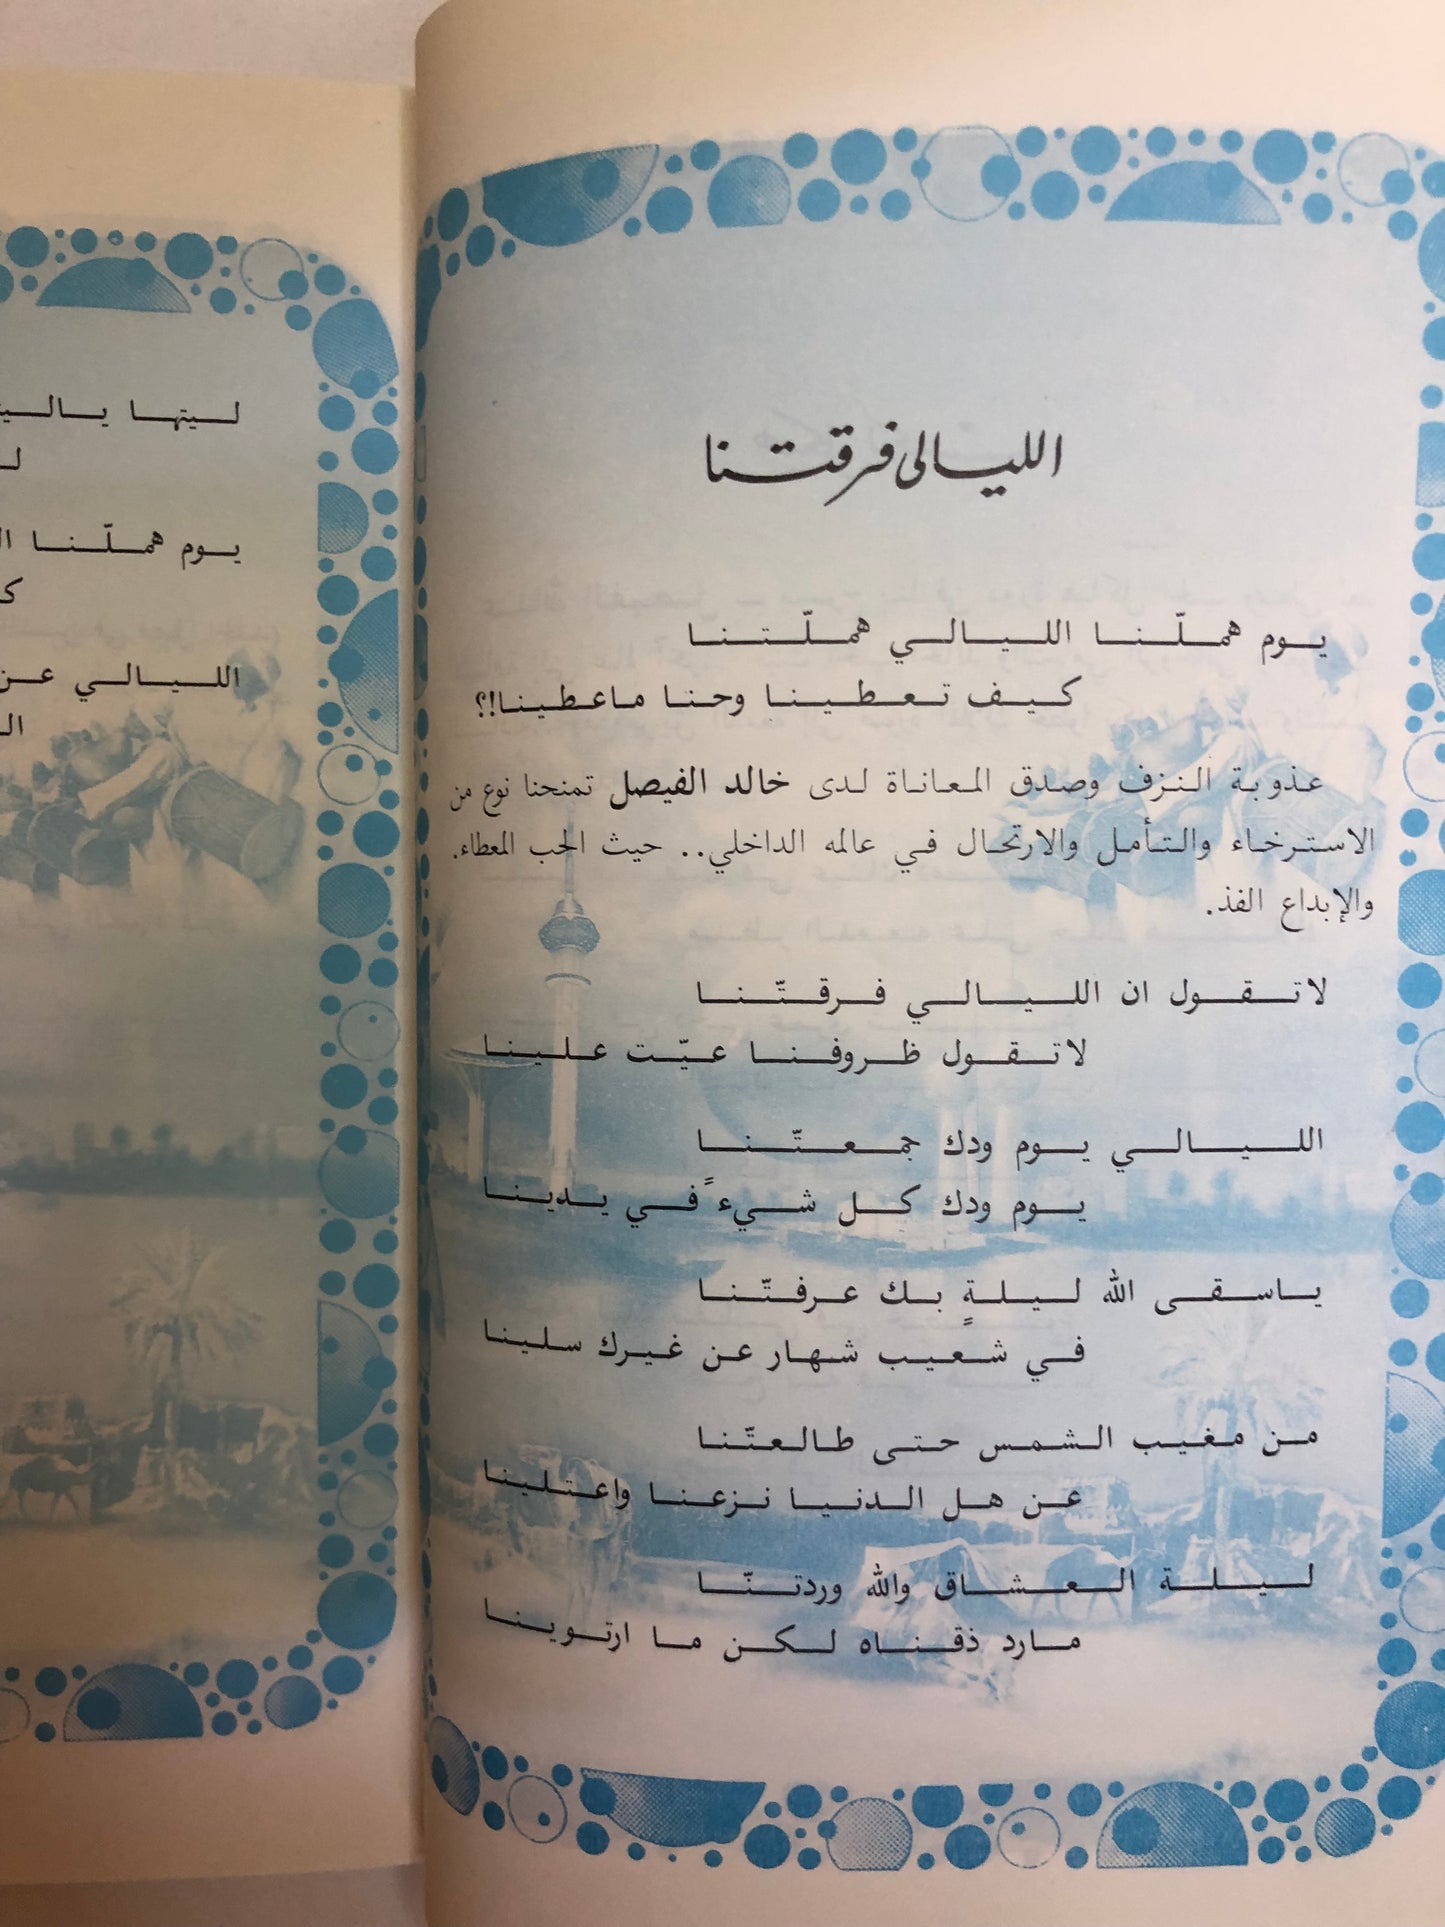 الليالي فرقتنا
يوم هملّنا الليالي هملّتنا
كيف تعطينا وحنا ماعطينا!؟
عذوبة النزف وصدق المعاناة لدى خالد الفيصل تمنحنا نوع من
الاسترخاء والتأمل والارتحال في عالمه الداخلي.. حيث الحب المعطاء.
والإبداع الفذ.
لاتقول ان الليالي فرقتّنا
لاتقول ظروفنا عيّت علينا
الليالي يوم ودك جمعتّنا
يوم ودك كل شيءً في يدينا
ياسقى الله ليلةٍ بك عرفتّنا
في شعيب شهار عن غيرك سلينا
من مغيب الشمس حتى طالعتّنا
عن هل الدنيا نزعنا واعتلينا
ليلة العشاق والله وردتنّا
مارد ذقناه لكن ما ارتوينا
ليتها
يوم هملّنا
الليالي عن